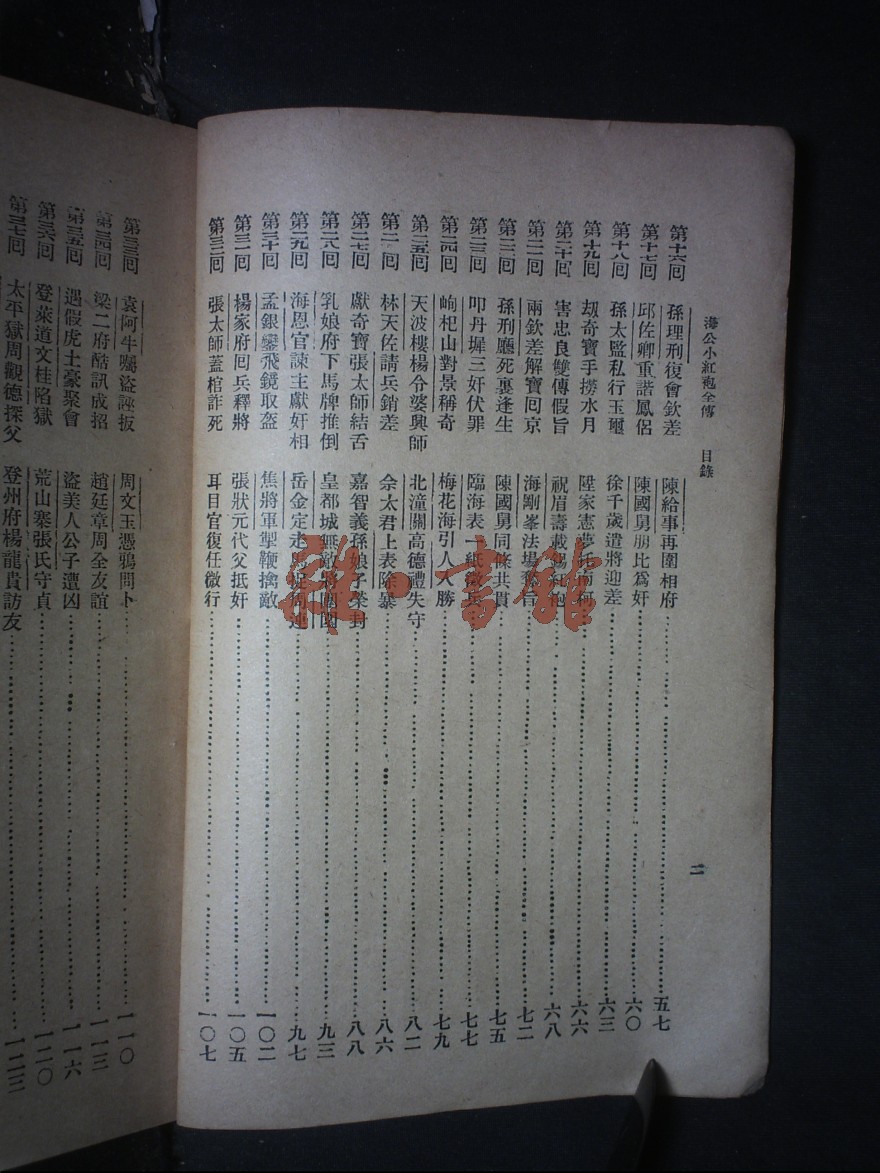 海公小紅袍全傳 目錄 二
第十六回 孫理刑復會欽差 陳給事再圍相府 五七
第十七回 邱佐卿重諧鳳侶 陳國舅朋比爲奸 六〇
第十八回 孫太監私行玉璽 徐千歲遣將迎差 六三
第十九回 刼奇寶手撈水月 陞家憲夢托南柯 六六
第二十回 害忠良雙傳假旨 祝眉壽載錫紅袍 六八
第二一回 兩欽差解寶回京 海剛峯法場奪旨 七二
第二二回 孫刑廳死裏逢生 陳國舅同條共貫 七五
第二三回 叩丹墀三奸伏罪 臨海表一紙徵兵 七七
第二四回 峋𣏌山對景稱奇 梅花海引人入勝 七九
第二五回 天波樓楊令婆興師 北潼關高德禮失守 八二
第二 回 林天佐請兵銷差 佘太君上表除暴 八六
第二七回 獻奇寶張太師結舌 嘉智義孫娘子榮封 八八
第二八回 乳娘府下馬牌推倒 皇都城無敵將圍困 九三
第二九回 海恩官諫主獻奸相 岳金定走馬捉周連 九七
第三十回 孟銀鑾飛鏡取盔 焦將軍掣鞭擒敵 一〇二
第三一回 楊家府回兵釋將 張狀元代父抵奸 一〇五
第三二回 張太師蓋棺詐死 耳目官復任微行 一〇七
第三三回 袁阿牛囑盜誣扳 周文玉憑鴉問卜 一一〇
第三四回 梁二府酷訊成招 趙廷章周全友誼 一一三
第三五回 遇假虎土豪聚會 盜美人公子遭凶 一一六
第三六回 登萊道文桂陷獄 荒山寨張氏守貞 一二〇
第三七回 太平獄周觀德探父 登州府楊龍貴訪友 一二三
雅一書館